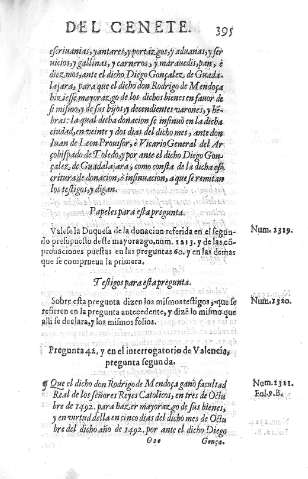 DEL CENETE. 395
escriuanias, y antares, y portazgos, y aduanas, y ser
uicios, y gallinas, y carneros, y marauedis, pan, ò
diezmos, ante el dicho Diego Gonçalez, de Guada-
lajara, para que el dicho don Rodrigo de Mendoça
hiziesse mayorazgo de los dichos bienes en fauor de
si mismo, y de sus hijos, y decendientes varones, y hẽ-
bras: la qual dicha donacion se insinuò en la dicha
ciudad, en veinte y dos dias del dicho mes, ante don
Iuan de Leon Prouisor, ò Vicario General del Ar-
çobispado de Toledo, y por ante el dicho Diego Gon-
çalez, de Guadalajara, como consta de la dicha es-
critura de donacion, ò insinuacion, a que se remitan
los testigos, y digan.
Papeles para esta pregunta.
Valese la Duquesa de la donacion referida en el segun-
do presupuesto deste mayorazgo, num. 1213. y de las cõ-
prouaciones puestas en las preguntas 60. y en las demas
que se comprueua la primera.
Num. 1319.
Testigos para esta pregunta.
Sobre esta pregunta dizen los mismos testigos, que se
refieren en la pregunta antecedente, y dizẽ lo mismo que
alli se declara, y los mismos folios.
Num. 1320.
Pregunta 42, y en el interrogatorio de Valencia,
pregunta segunda.
¶ Que el dicho don Rodrigo de Mendoça ganò facultad
Real de los señores Reyes Catolicos, en tres de Octu
bre de 1492. para hazer mayorazgo de sus bienes,
y en virtud della en cinco dias del dicho mes de Octu
bre del dicho año de 1492. por ante el dicho Diego
Num. 1321.
Gonça-